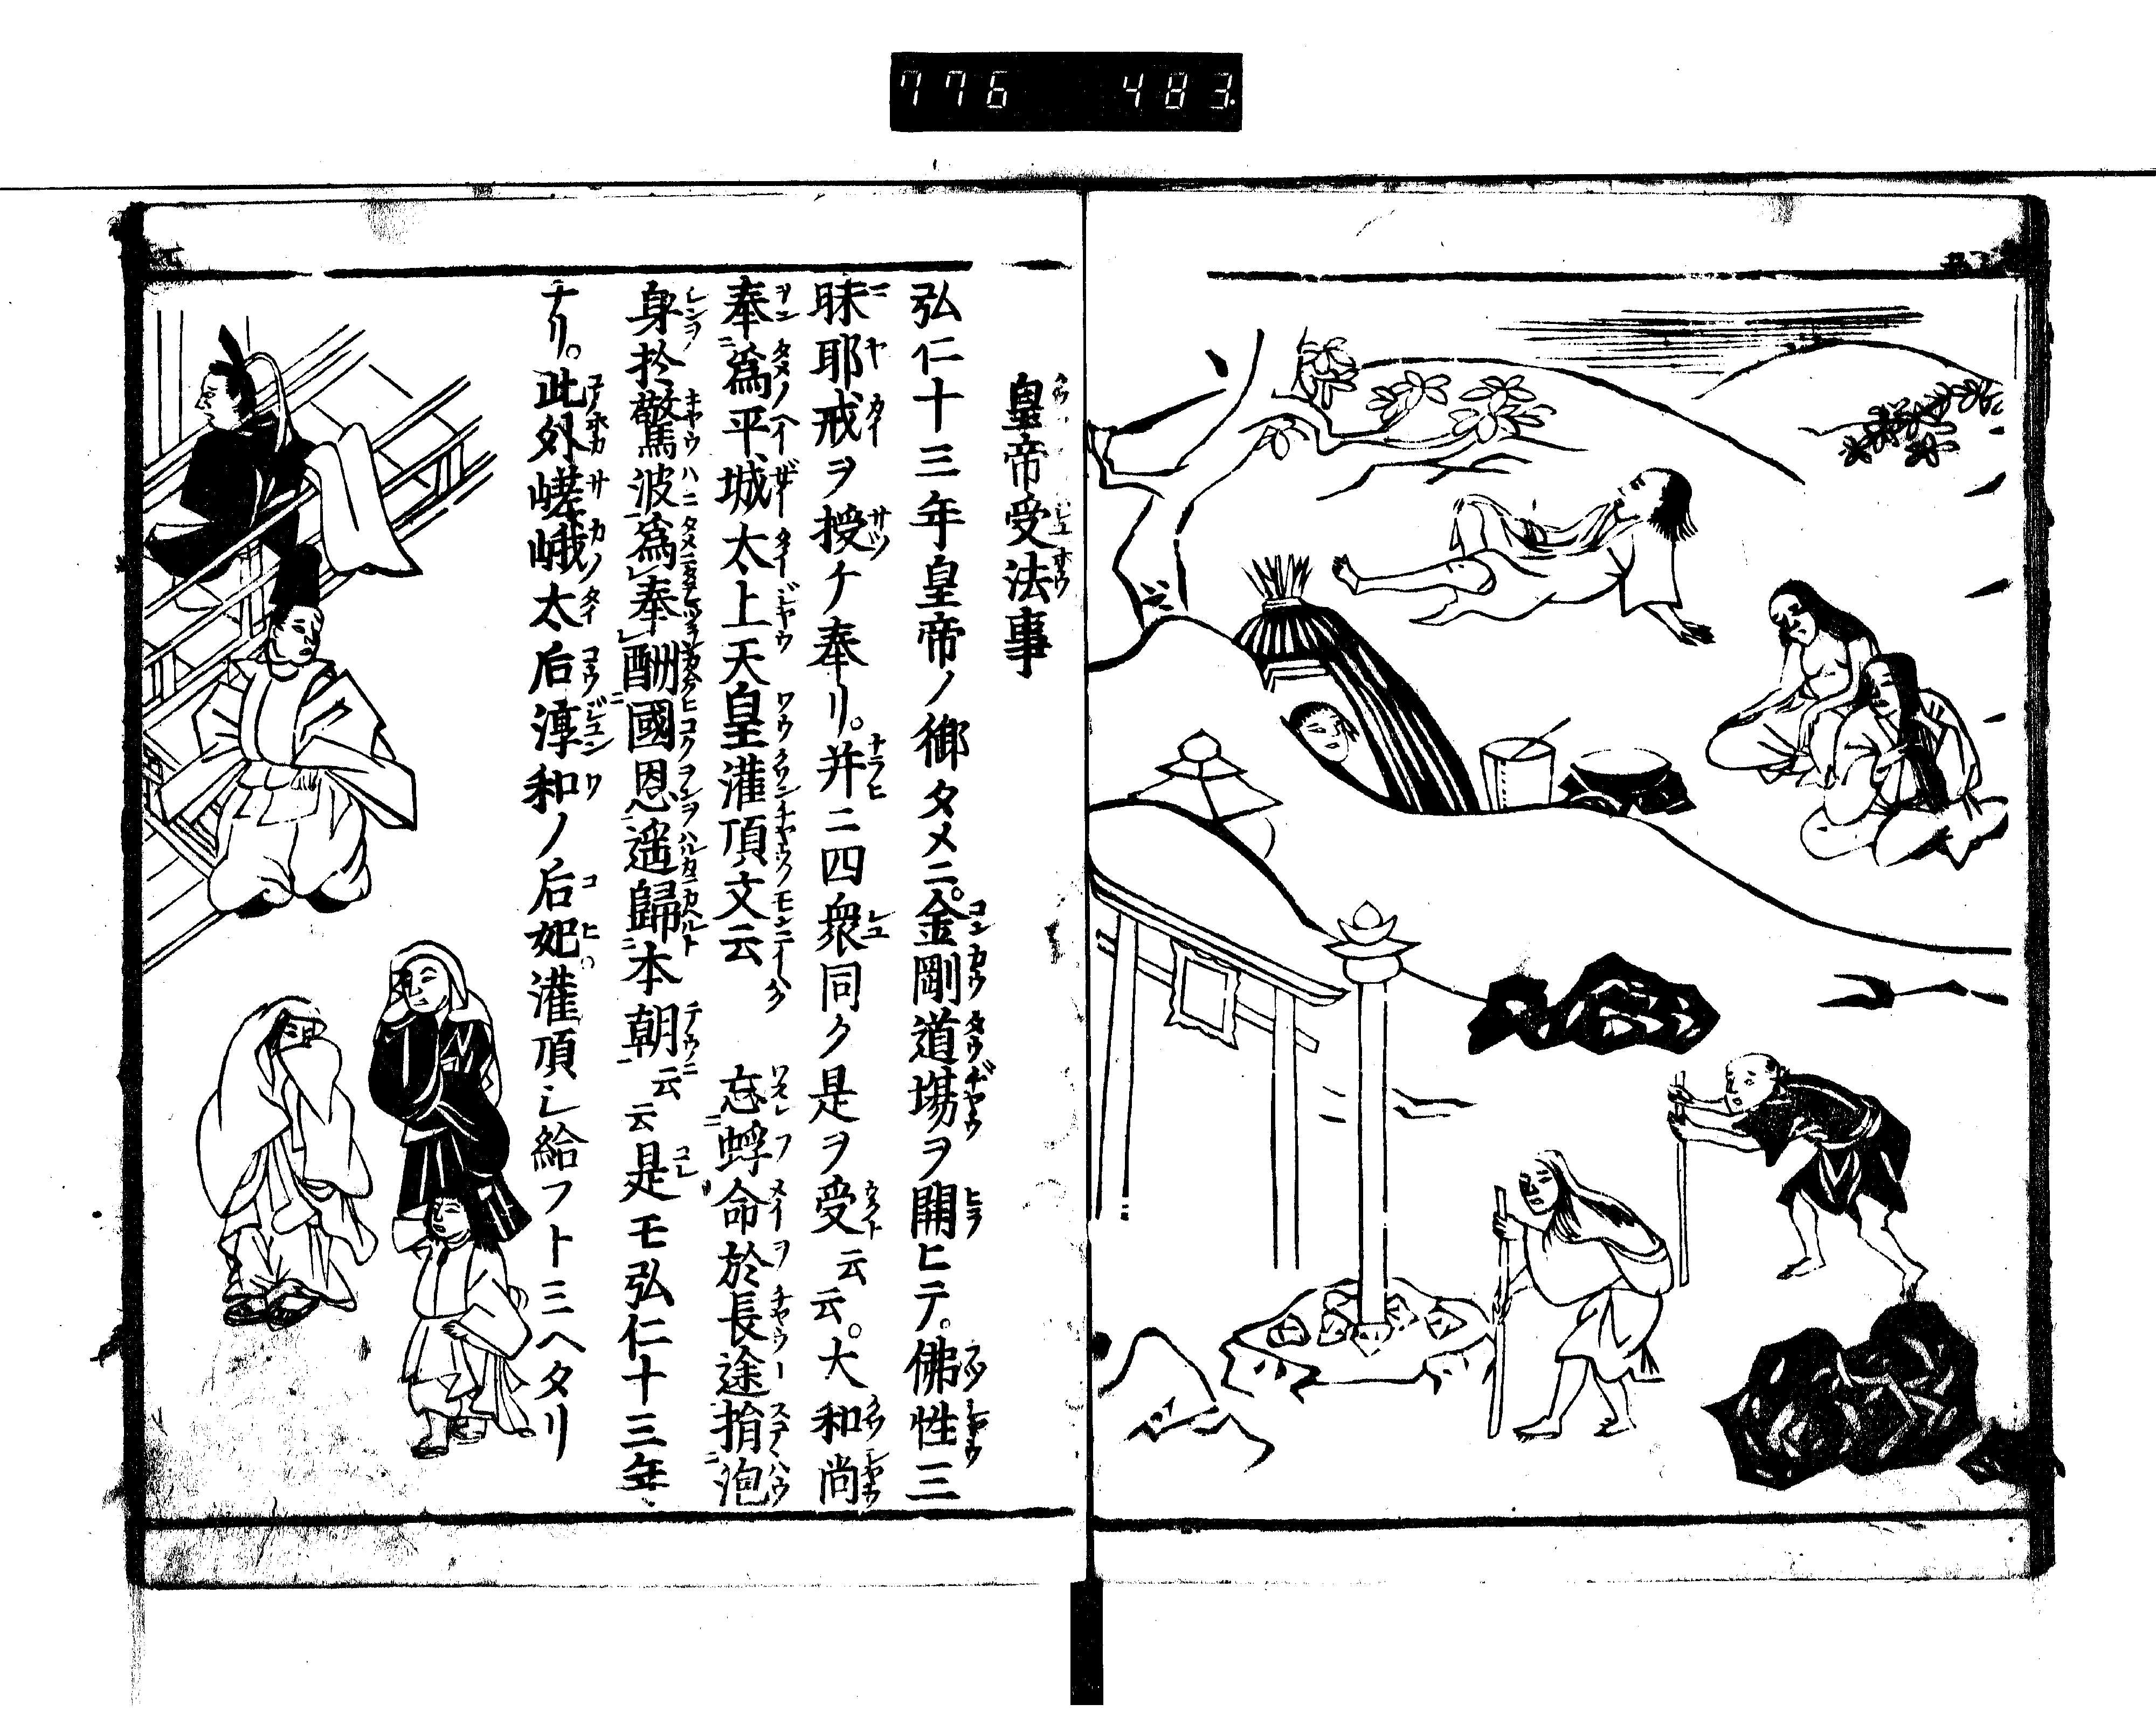 776 483
皇帝受法事
弘仁十三年皇帝ノ御タメニ。金剛道場ヲ開ヒテ。佛性三
昧耶戒ヲ授ケ奉リ。并ニ四衆同ク是ヲ受云云。大和尚
奉為平城太上天皇灌頂文云 忘蜉命於長途捐泡
身於驚波為奉酬國恩遥歸本朝云云是モ弘仁十三年
ナリ。此外嵯峨太后淳和ノ后妃灌頂シ給フトミヘタリ